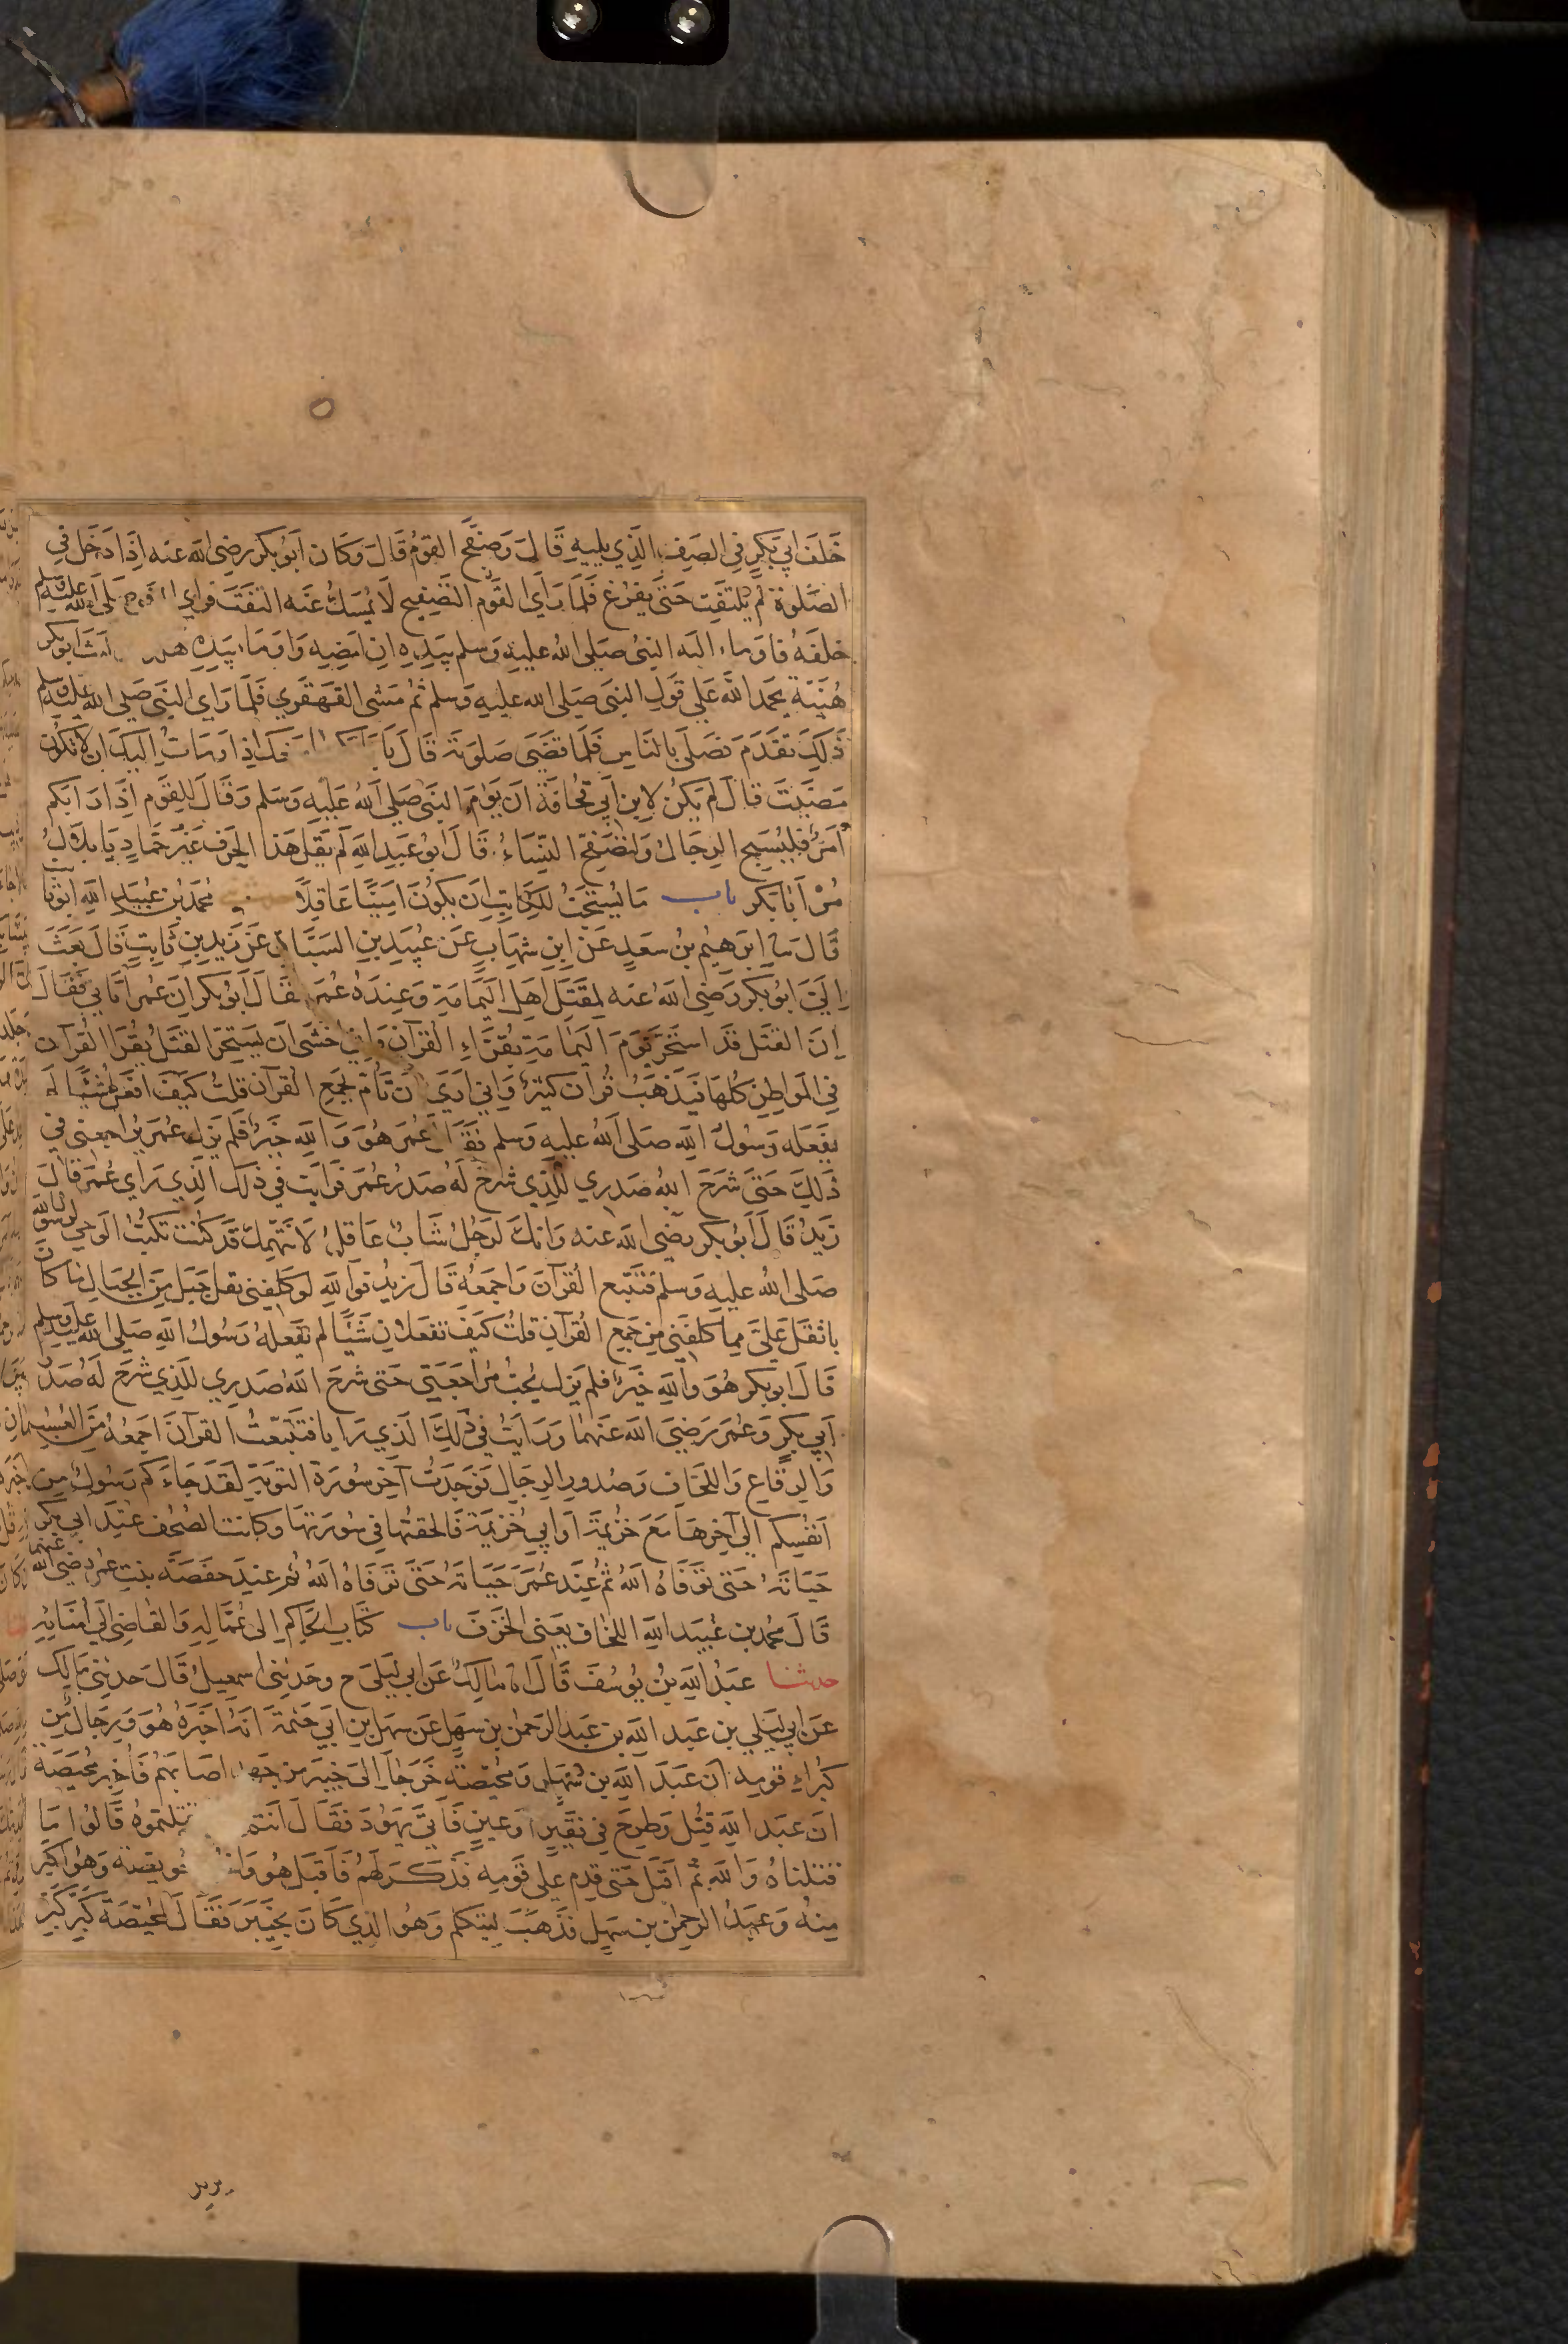 خَلْفَ ابي بَكْرٍ فِي الصَفِّ الَّذِي يليهِ قَالَ وَصَفَّحَ القَومُ قَالَ وَكَانَ اَبُو بكر رضى الله عنه اِذَا دَخَل فِي
الصَّلوة لَمْ يَلتَفِت حَتَّى يَفرُغَ فَلَمَّا رَاَى القَوْم التَّصْفِيح لَا يُمسَكُ عَنه التَفَتَ فراى صَلى الله عليه وسلم
خلفَهُ فاوماء اليه النبى صَلى الله عليهِ وَسَلم بيَدِهِ انِ امْضِهِ وَاوَمَاء بيَدِهِ ابو بكر
هُنَيَّةً يحمَد اللهَ عَلى قَولِ النبى صَلى الله عليهِ وَسلم ثم مَشَى القَهقَرِي فَلمّا رَاي النَبى صَلى الله عليه وسلم
ذَلِكَ تقَدَّمَ فصَلى بالنَاسِ فَلمّا قضَى صَلوتَهُ قَالَ يَا اذ اومَاتُ اِليكَ ان لا تكُون
مَضَيْتَ قالَ لم يَكُنْ لاِبنِ اَبي قُحافَةَ اَن يَؤُمَّ النبى صَلى الله عَليهِ وَسَلم وَقَالَ لِلقَوْم اِذَا رَابكم
اَمرٌ فليُسَبِّح الرجَالُ وَلْتُصَفِّح النِّسَاءُ قَالَ ابُو عَبدِ اللهِ لَم يقل هَذا الحَرف غَيْرُ حَمَّادٍ يَا بلالُ
مُرْ اَبَا بَكرٍ باب مَا يُستَحَبُّ للكَاتِبِ اَن يكُونَ امِينًا عَاقلًا مُحمَد بن عُبَيد اللهِ ابو ثابت
قَالَ سا اِبرَهِيم بنُ سعَدٍ عَن ابنِ شهَابٍ عَن عُبيَدِ بنِ السَبَّاقِ عَن زَيدِ بنِ ثابتٍ قَالَ بَعَثَ
اِليَّ ابُو بكر رَضِى الله عنه لِمقتَلِ اهلِ اليمَامَةِ وَعِندَهُ عُمَر فقَالَ اَبُو بكر اِنَّ عُمَرَ اتَاني فَقَالَ
اِنَّ القَتلَ قَد استَحَرَّ يَوْمَ اليَمَامَةِ بقُرَّاءِ القُرآنِ وَاِنِي اخشَى اَن يَستَحِرَّ القَتلُ بقُرَّاء القُرآنِ
فِي المَوَاطِنِ كُلهَا فيَذهَبُ قُرآن كثيرٌ وَاِني ارَى اَن تَامُرَ بجَمعِ القُرآنِ قلتُ كَيفَ افعَلُ شَيئًا لَم
يفعَله رَسُولُ اللهِ صَلى الله عليه وسلم فَقَالَ عُمَر هُوَ وَاللهِ خَيرٌ فَلَم يَزَل عُمَر يُرَاجعني في
ذَلِكَ حَتَّى شَرَحَ اللهُ صَدري لِلَّذِي شَرحَ لَهُ صَدرَ عُمَر وَرايت فى ذلِكَ الَّذِي رَاي عُمَر قَالَ
زَيدٌ قَالَ اَبُو بكر رضى الله عنه وَانكَ لَرَجُلٌ شَابٌّ عَاقِلٌ لَا نَتَّهِمُكَ قَد كُنتَ تكتُبُ الوَحيَ لِرسُول الله
صَلى الله عليهِ وَسلم فتَتَبَّع القُرآنَ وَاجمَعهُ قَالَ زيدٌ فَوَاللهِ لو كلفني نقل جَبَل مِنَ الجبَالِ مَا كَانَ
باثقَل عَليَّ مما كلفَني مِن جَمعِ القُرآنِ قلتُ كَيفَ تفعَلانِ شَيئًا لم يَفعَلهُ رَسُولُ اللهِ صَلى الله عليه وسلم
قَالَ ابو بكر هُوَ وَاللهِ خَيرٌ فلم يَزل يُحبُّ مُرَاجَعَتِي حَتى شرحَ اللهُ صَدرِي لِلَّذِي شَرَحَ لَهُ صَدرَ
اَبي بكرٍ وَعُمَر رَضِيَ الله عَنهما وَرَايتُ في ذَلِكَ الَذي رَايَا فتتَبَّعتُ القرآنَ اجمعهُ مِنَ العُسُبِ
وَالرِقَاعِ وَاللخَاف وَصُدُورِ الرجَال فوَجَدتُ آخرَ سُورَة التوبَةِ لَقَد جَاءَكم رَسُولٌ مِن
اَنفُسِكم اِلى آخِرِهَا مَعَ خُزَيمَةَ اَو ابي خُزَيمَة فَالحقتُها فِي سُورَتهَا وكانت الصُحُف عندَ ابي بكر
حَيَاتَهُ حَتى تَوَفَّاهُ اللهُ ثُم عِندَ عُمَرَ حَيَاتَهُ حَتَّى تَوَفاهُ اللهُ ثم عِندَ حفصَة بنتِ عمر رضى الله عنهما
قَالَ محمد بن عُبَيد اللهِ اللخَافُ يعَنى الخزَفَ باب كتَابِ الحَاكِم اِلى عُمّالِهِ وَالقَاضِى اِلي اُمَنَائِهِ
حدثنا عَبدُ اللهِ بنُ يُوسُفَ قَالَ انا مَالِكٌ عَن ابى لَيلَى ح وحَدثنى اسمعِيلُ قَالَ حَدثني مَالِك
عَن ابي لَيلي بن عَبد اللهِ بن عَبدِ الرَحمن بنِ سَهلٍ عَن سَهلِ بنِ ابي حَثمَةَ انَّهُ اخبَرَهُ هُوَ وَرِجَال مِن
كُبَراءِ قومِهِ انَّ عَبدَ اللهِ بن سَهلٍ وَمُحَيّصَةَ خَرَجَا اِلى خيبَرَ مِن جَهد اصَابهُم فَاُخبِرَ مُحيّصَة
اَنَّ عبدَ اللهِ قُتِل وَطُرِحَ في فقيرٍ اَو عينٍ فَاَتى يهُودَ فَقَالَ اَنتم قتلتموهُ قَالُوا مَا
قتلناهُ وَاللهِ ثم اقبَلَ حَتى قدِم عَلى قَومِهِ فذَكَرَ لَهُم فَاَقبَل هُوَ وَاخُوهُ حويصَة وَهُو اكبَر
مِنهُ وَعَبدُ الرحمن بن سَهلٍ فذَهَبَ ليَتكلم وَهُوَ الذي كَانَ بخَيبَرَ فَقَالَ لمُحيّصَة كَبِّر كَبِّر
يريد